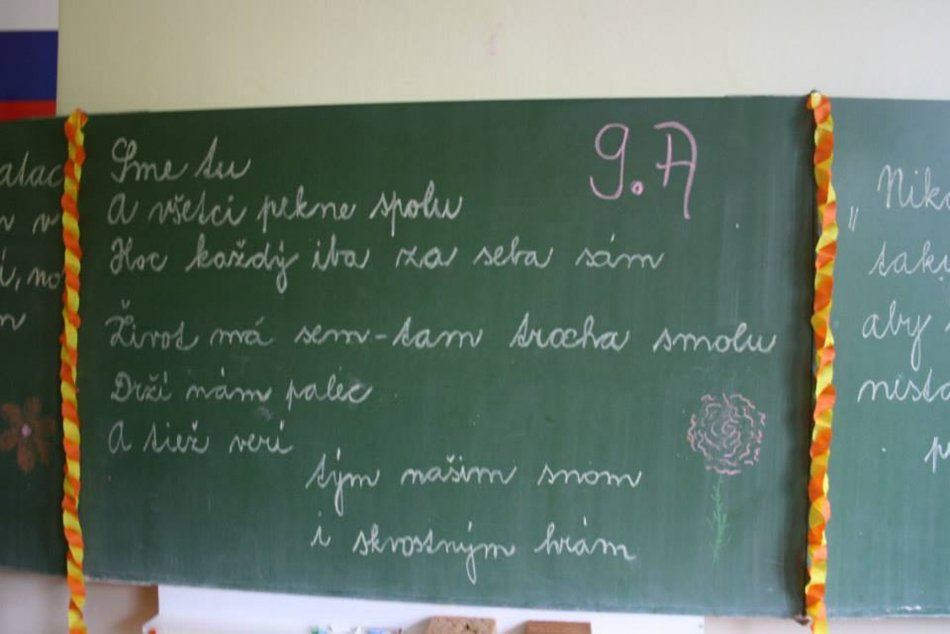 Sme tu
9.A
A všetci pekne spolu
Hoc každý iba za seba sám
Život má sem-tam trocha smolu
Drží nám palec
A tiež verí
tým našim snom
i skvostným hrám
atac
í, no
„Nik
taký
aby